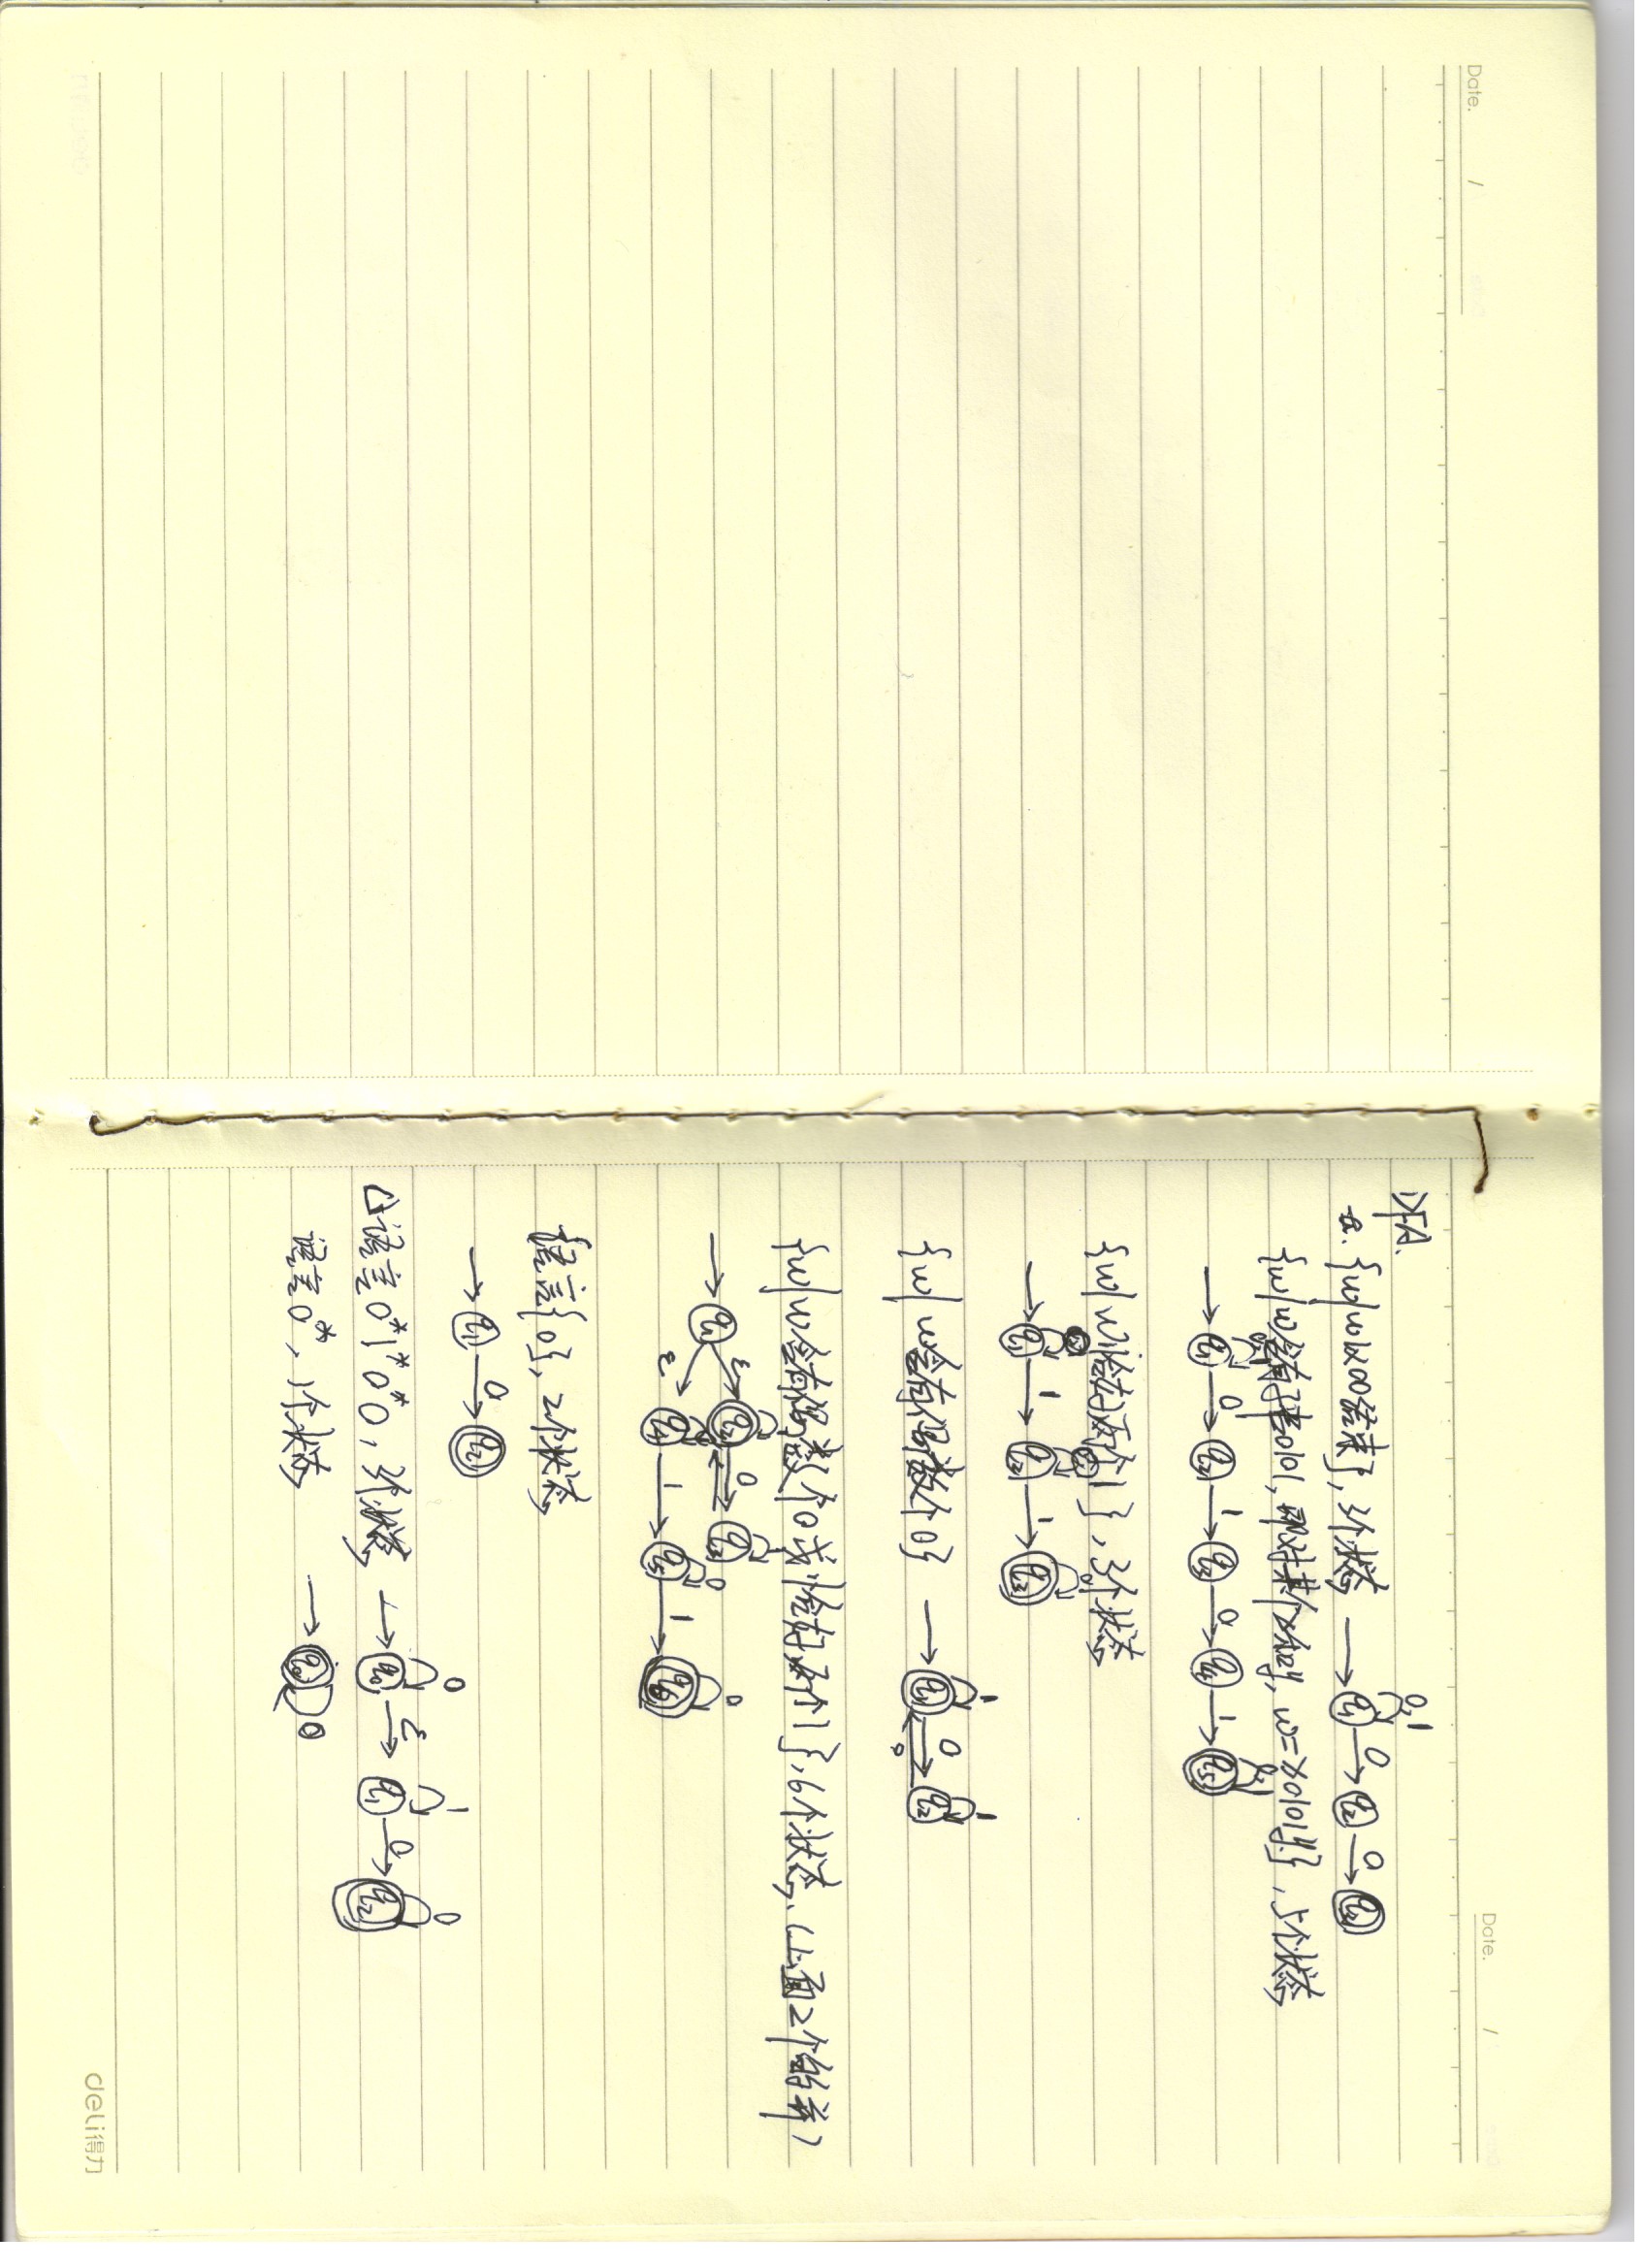 Date. /
Date. /
DFA.
a. {w|w以00结束}, 3个状态
0,1
q1 0 q2 0 q3
{w|w含有子串0101, 即对某个x和y, w=x0101y}, 5个状态
q1 0 q2 1 q3 0 q4 1 q5
{w|w恰好两个1}, 3个状态
0
q1 1 q2 1 q3
{w|w含有偶数个0}
1 1
q1 0 q2
0
{w|w含有偶数个0或恰好两个1}, 6个状态. (上面2个的并)
q1 ε q2 0 q3
0 0
ε q4 1 q5 1 q6
语言{0}, 2个状态
q1 0 q2
0 1 0
语言0*1*0*0, 3个状态 q0 ε q1 0 q2
语言0*, 1个状态 q0 0
deli得力